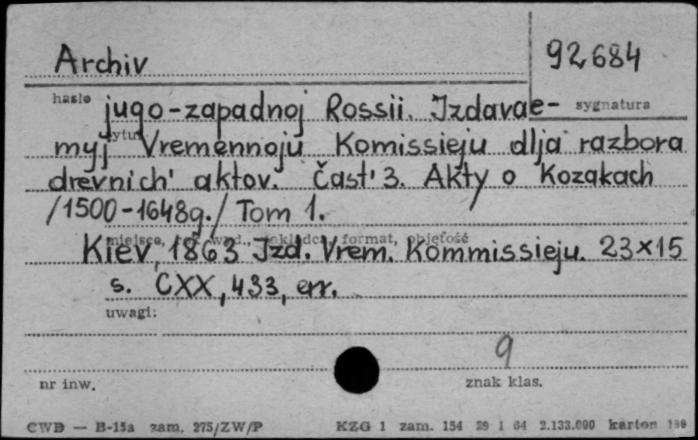 Archiv
92684
hasło
sygnatura
jugo-zapadnoj Rossii. Izdavae-
myj Vremennoju Komissieju dlja razbora
drevnich' aktov. Čast' 3. Akty o Kozakach
/1500-1648g./ Tom 1.
miejsce, format, objętość
Kiev, 1863 Izd. Vrem. Kommissieju. 23×15
s. CXX, 433, err.
uwagi:
9
nr inw.
znak klas.
CWD — B-15a zam. 275/ZW/P KZG 1 zam. 154 29 1 64 2.133.000 karton